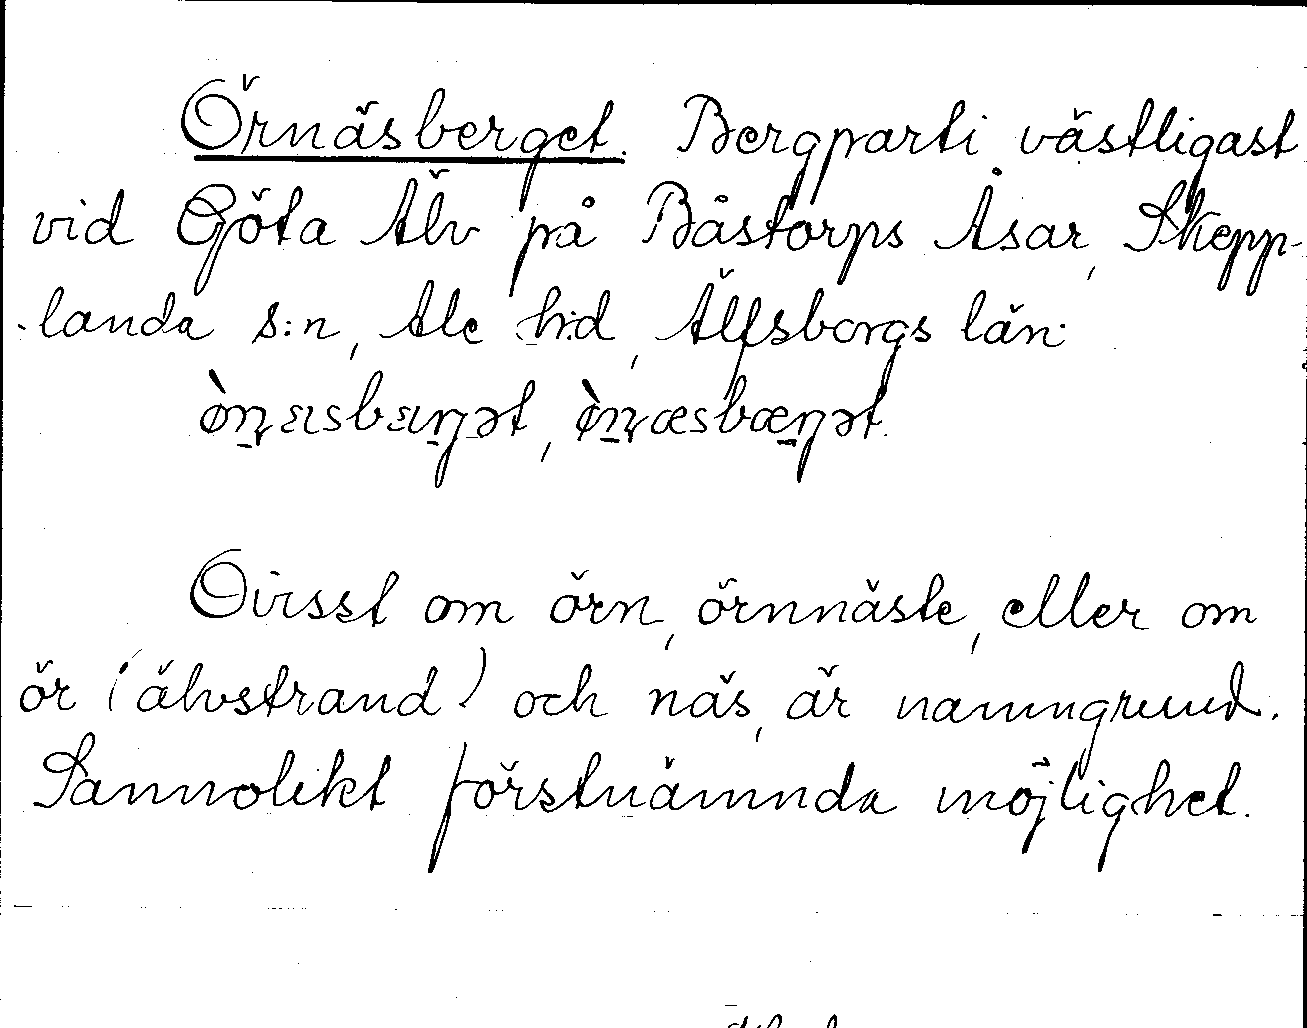 Örnäsberget. Bergparti västligast
vid Göta Älv på Båstorps Åsar, Skepp-
landa s:n, Ale h:d, Älfsborgs län.
Ovisst om örn, örnnäste, eller om
ör (älvstrand) och näs, är namngrund.
Sannolikt förstnämnda möjlighet.